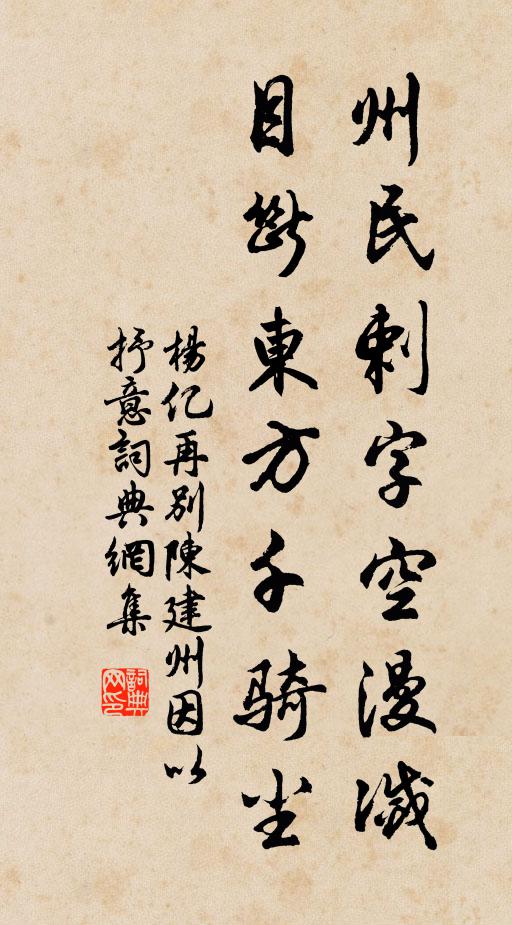 州民刺字空漫滅
目斷東方千騎尘
楊亿再別陳建州因以
抒意詞典網集
詞典
网印